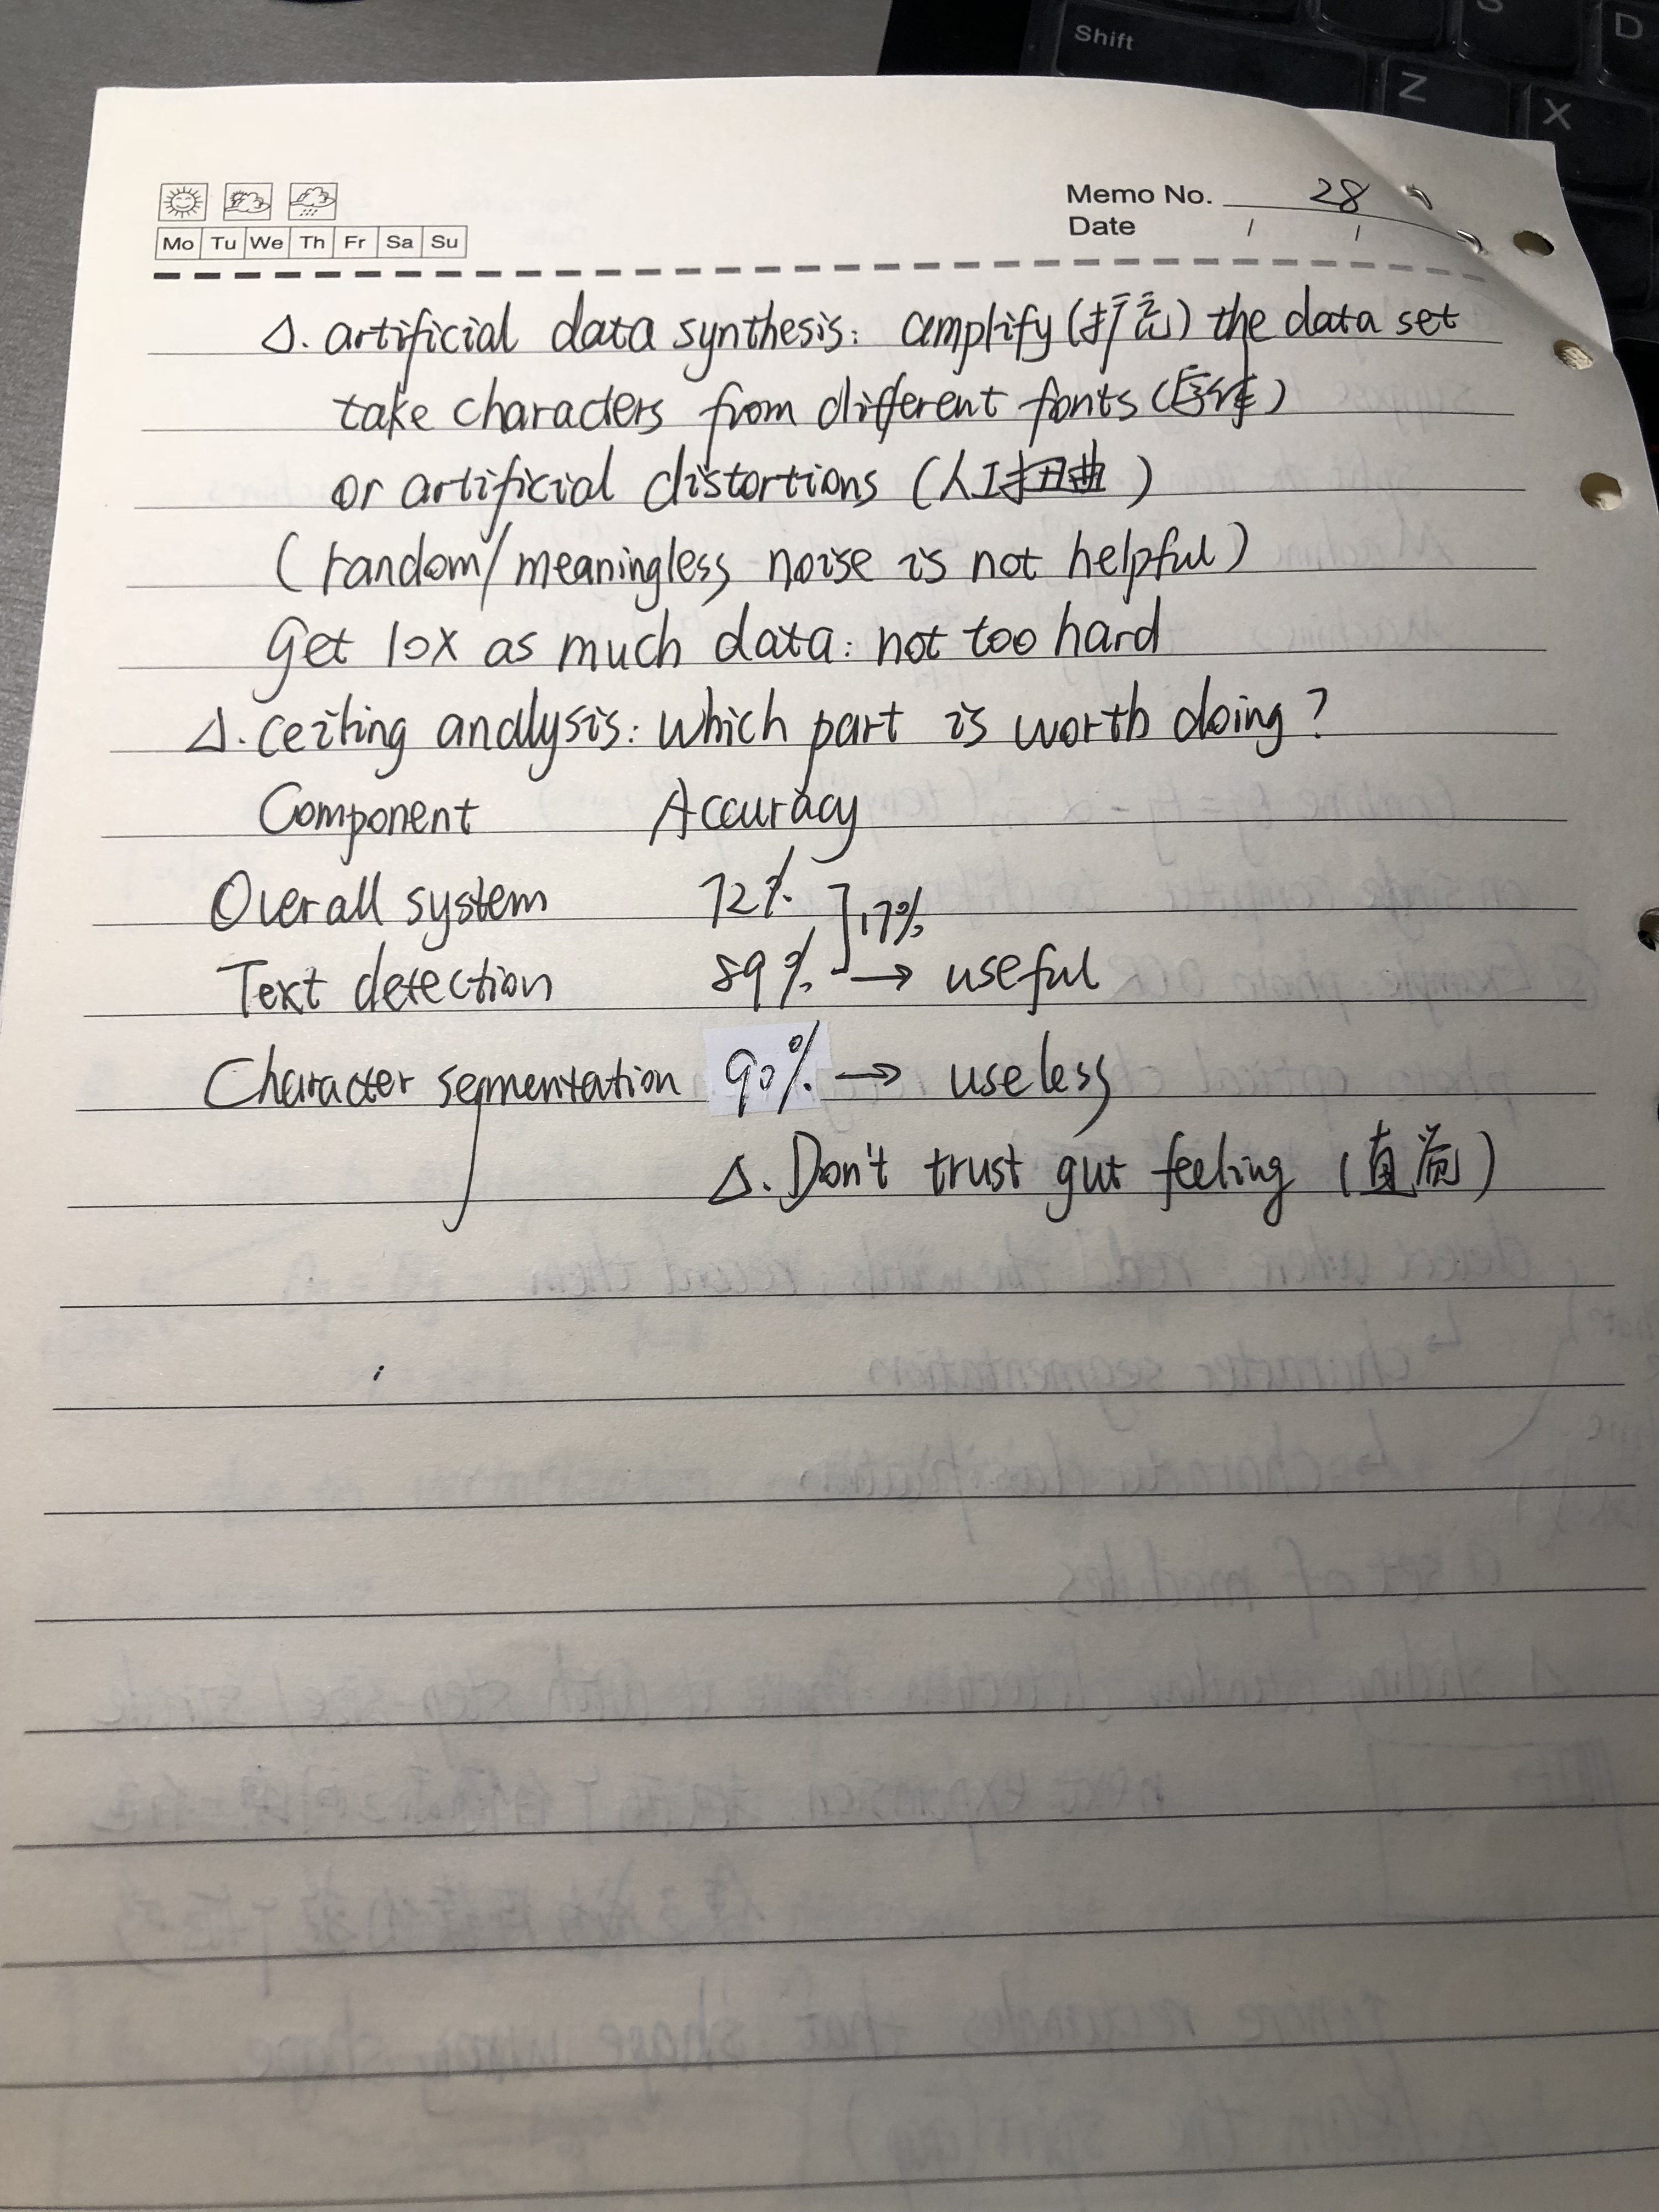 Shift
Z
X
S
D
Memo No. 28
Mo Tu We Th Fr Sa Su
Date / /
Δ. artificial data synthesis: amplify (扩充) the data set
take characters from different fonts (字体)
or artificial distortions (人工扭曲)
(random/meaningless noise is not helpful)
Get 10X as much data: not too hard
Δ. Ceiling analysis: which part is worth doing?
Component Accuracy
Overall system 72% ] 17%
Text detection 89% → useful
Character segmentation 90% → useless
Δ. Don't trust gut feeling (直觉)